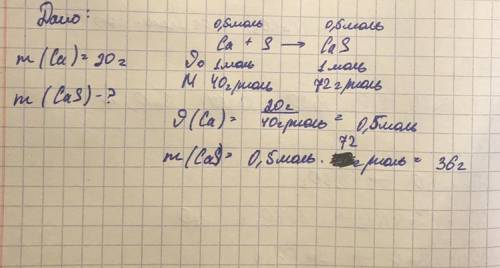 Дано:
m(Ca) = 20г
m(CaS) - ?
0,5моль 0,5моль
Ca + S → CaS
ϑо 1моль 1моль
M 40г/моль 72г/моль
ϑ(Ca) = 20г / 40г/моль = 0,5моль
72
m(CaS) = 0,5моль · г/моль = 36г